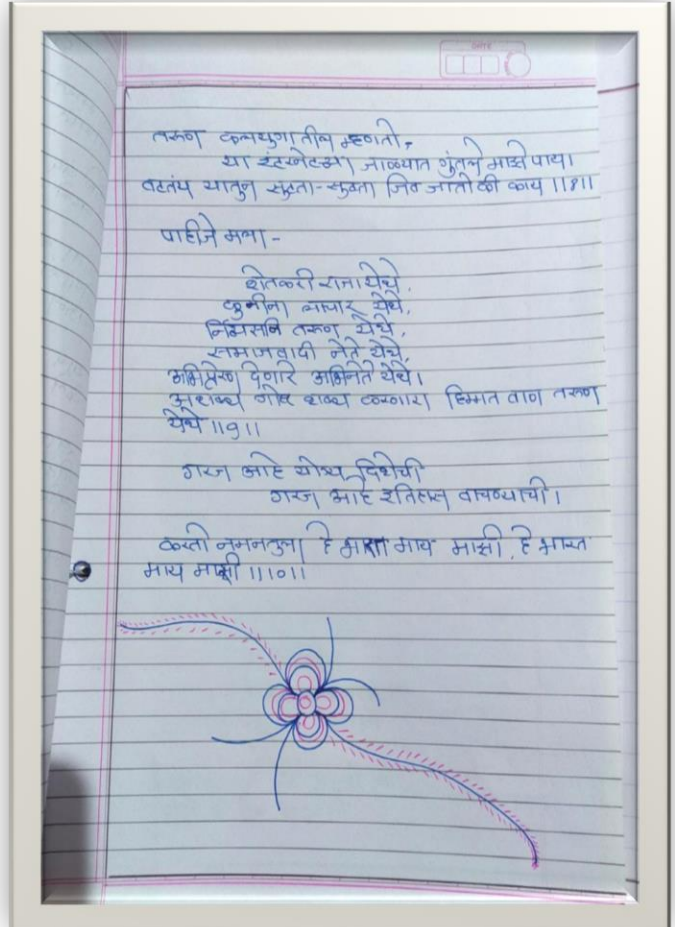 DATE
तरुण कलयुगातील म्हणतो,
या इंटरनेटच्या जाळ्यात गुंतले माझे पाय।
वाटतंय यातुन सुटता-सुटता जिव जातो की काय ॥8॥
पाहीजे मला-
शेतकरी राजा येथे,
कुनीना व्यापार येथे,
निर्व्यसनि तरुण येथे,
समाजवादी नेते येथे,
अभिप्रेरण देणारे अभिनेते येथे।
अशक्य गोष्ट शक्य करणारा हिम्मत वाण तरुण
येथे ॥9॥
गरज आहे योग्य दिशेची
गरज आहे इतिहास वाचण्याची।
करतो नमन तुला हे भारत माय माझी, हे भारत
माय माझी ॥10॥